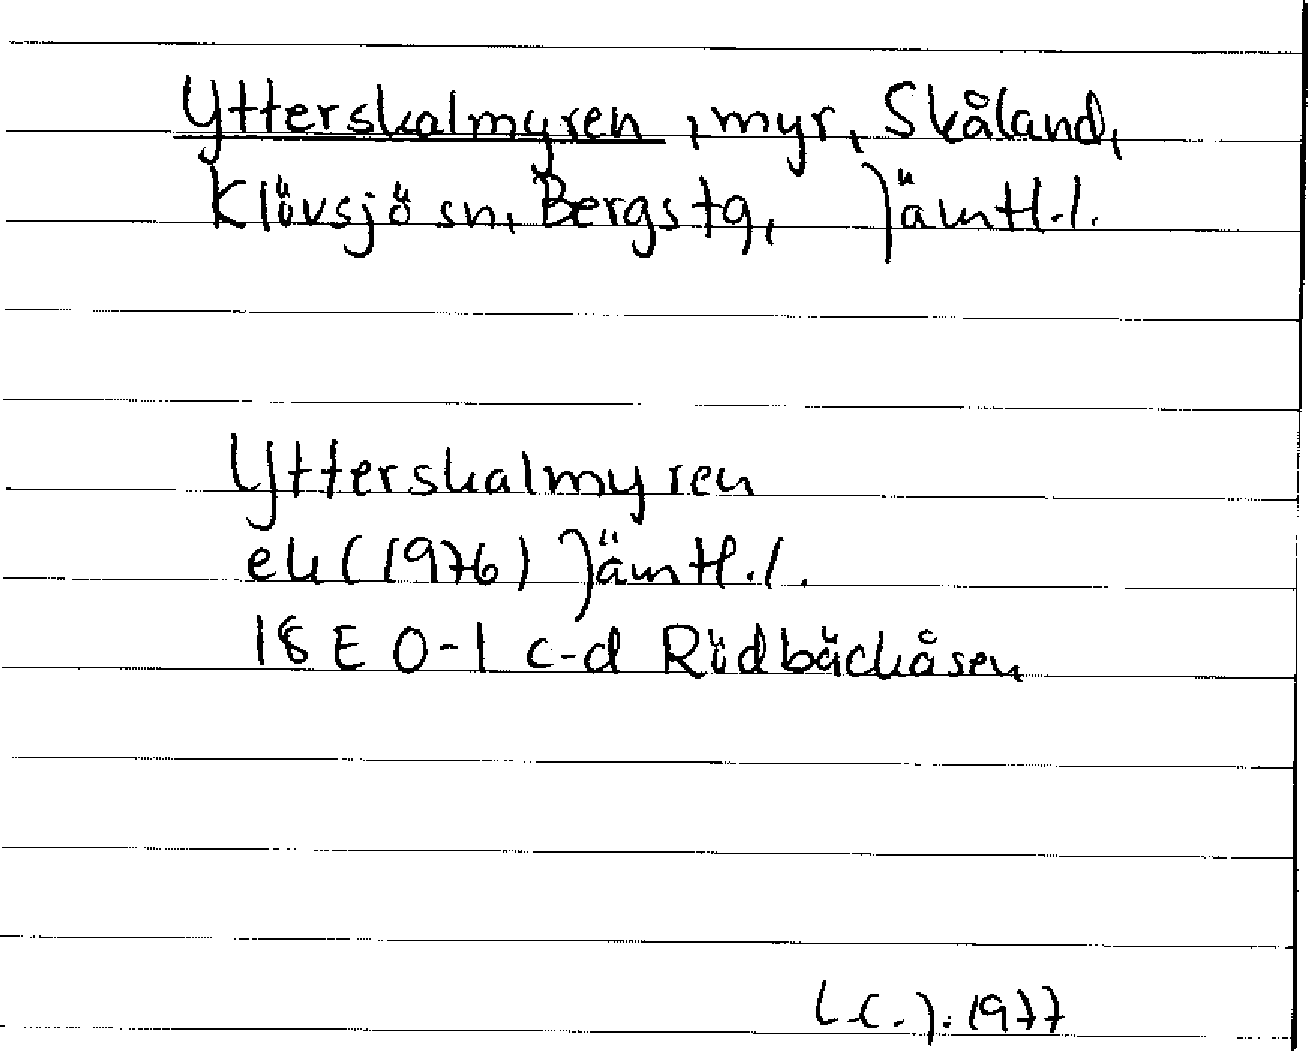 Ytterskalmyren, myr, Skåland,
Klövsjö sn, Bergs tg, Jämtl.l.
Ytterskalmyren
ek (1976) Jämtl.l.
18 E 0-1 c-d Rödbäckåsen
L.C.J. 1977